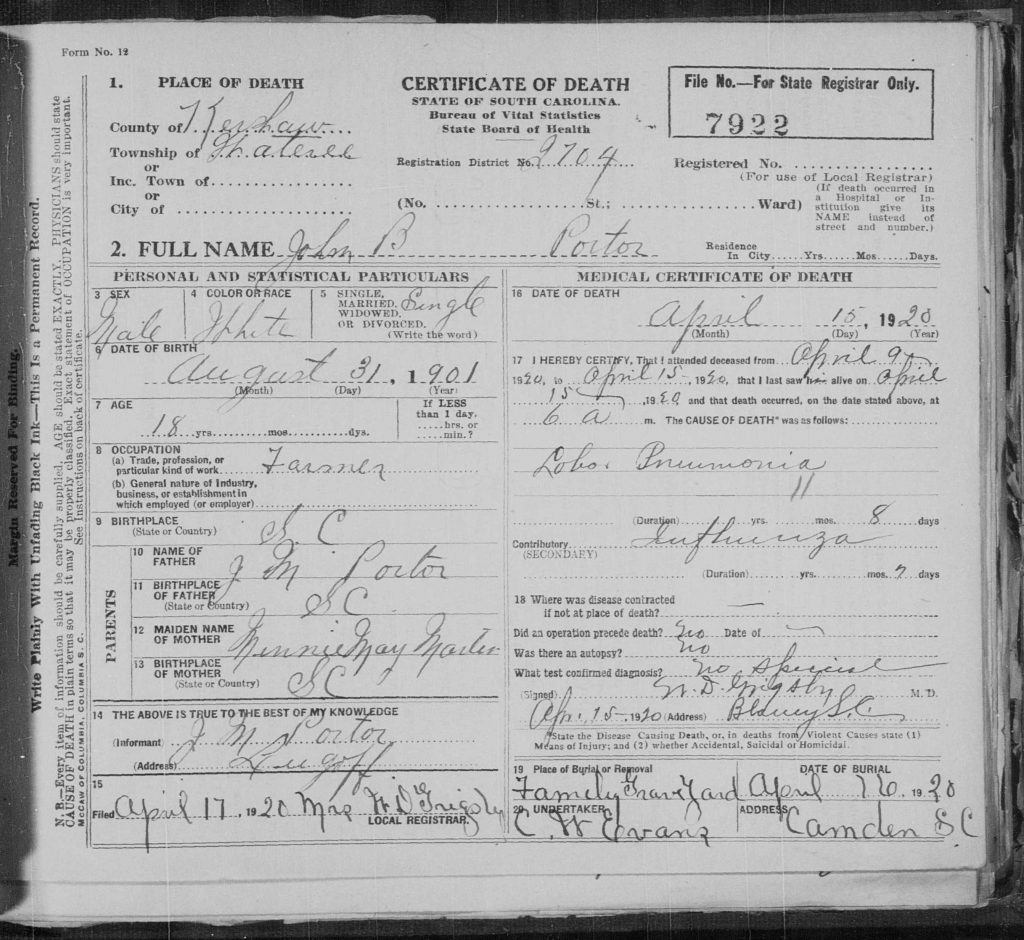 Form No. 12
1. PLACE OF DEATH
County of Kershaw
Township of Wateree
or
Inc. Town of
or
City of
CERTIFICATE OF DEATH
STATE OF SOUTH CAROLINA.
Bureau of Vital Statistics
State Board of Health
Registration District No. 2704
(No. St.; Ward)
File No.—For State Registrar Only.
7922
Registered No.
(For use of Local Registrar)
(If death occurred in
a Hospital or In-
stitution give its
NAME instead of
street and number.)
2. FULL NAME John B Porter
Residence
In City Yrs. Mos. Days.
PERSONAL AND STATISTICAL PARTICULARS
3 SEX
Male
4 COLOR OR RACE
White
5 SINGLE,
MARRIED,
WIDOWED,
OR DIVORCED.
(Write the word)
Single
6 DATE OF BIRTH
August 31, 1901
(Month) (Day) (Year)
7 AGE
18 yrs. mos. dys.
If LESS
than 1 day.
hrs. or
min.?
8 OCCUPATION
(a) Trade, profession, or
particular kind of work Farmer
(b) General nature of Industry,
business, or establishment in
which employed (or employer)
9 BIRTHPLACE
(State or Country) S. C
PARENTS
10 NAME OF
FATHER J M Porter
11 BIRTHPLACE
OF FATHER
(State or Country) S C
12 MAIDEN NAME
OF MOTHER Minnie May Martin
13 BIRTHPLACE
OF MOTHER
(State or Country) S C
14 THE ABOVE IS TRUE TO THE BEST OF MY KNOWLEDGE
(Informant) J M Porter
(Address) Lugoff
15
Filed April 17, 1920 Mrs W D Grigsby
LOCAL REGISTRAR.
MEDICAL CERTIFICATE OF DEATH
16 DATE OF DEATH
April 15, 1920
(Month) (Day) (Year)
17 I HEREBY CERTIFY, That I attended deceased from April 9
1920, to April 15, 1920, that I last saw him alive on April
15, 1920 and that death occurred, on the date stated above, at
6 a m. The CAUSE OF DEATH* was as follows:
Lobar Pneumonia
11
(Duration) yrs. mos. 8 days
Contributory Influenza
(SECONDARY)
(Duration) yrs. mos. 7 days
18 Where was disease contracted
if not at place of death? —
Did an operation precede death? No Date of —
Was there an autopsy? No
What test confirmed diagnosis? No special
(Signed) W. D. Grigsby M. D.
Apr. 15, 1920 (Address) Blaney S.C.
*State the Disease Causing Death, or, in deaths from Violent Causes state (1)
Means of Injury; and (2) whether Accidental, Suicidal or Homicidal.
19 Place of Burial or Removal
Family Graveyard
DATE OF BURIAL
April 16, 1920
20 UNDERTAKER
C. W Evans
ADDRESS
Camden S C
Margin Reserved For Binding.
Write Plainly With Unfading Black Ink—This Is a Permanent Record.
N. B.—Every item of information should be carefully supplied. AGE should be stated EXACTLY. PHYSICIANS should state
CAUSE OF DEATH in plain terms so that it may be properly classified. Exact statement of OCCUPATION is very important.
See Instructions on back of certificate.
McCAW OF COLUMBIA, COLUMBIA S. C.